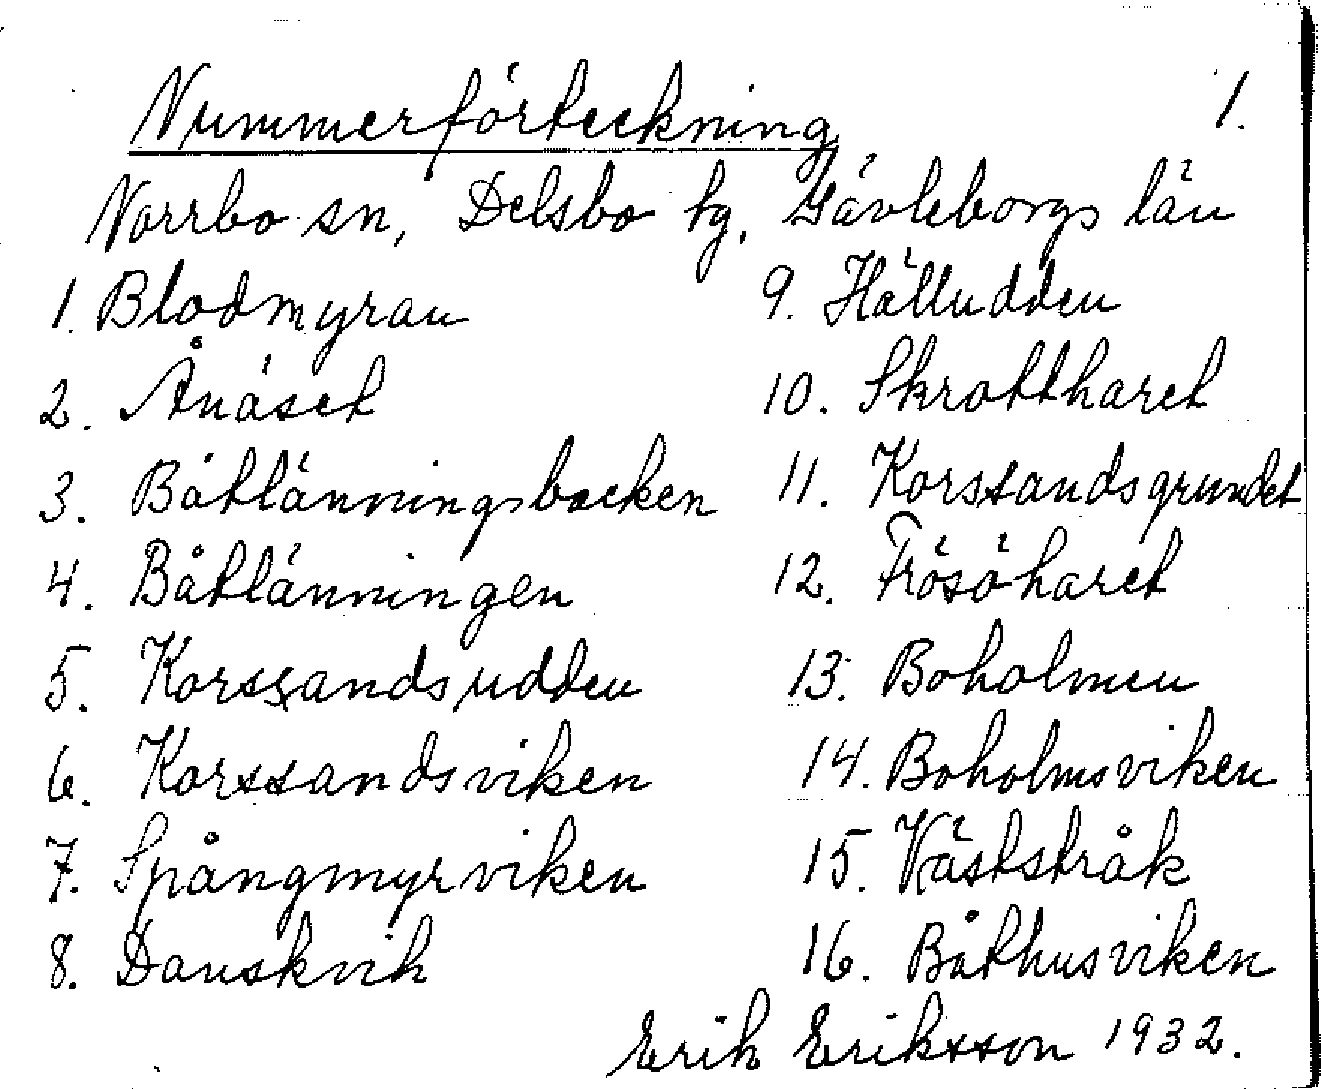 Nummerförteckning 1.
Norrbo sn, Delsbo tg, Gävleborgs län
1. Blodmyran
2. Ånäset
3. Båtlänningsbacken
4. Båtlänningen
5. Korssandsudden
6. Korssandsviken
7. Spångmyrviken
8. Danskvik
9. Hälludden
10. Skrottharet
11. Korssandsgrundet
12. Frösöharet
13. Boholmen
14. Boholmsviken
15. Väststråk
16. Båthusviken
Erik Eriksson 1932.